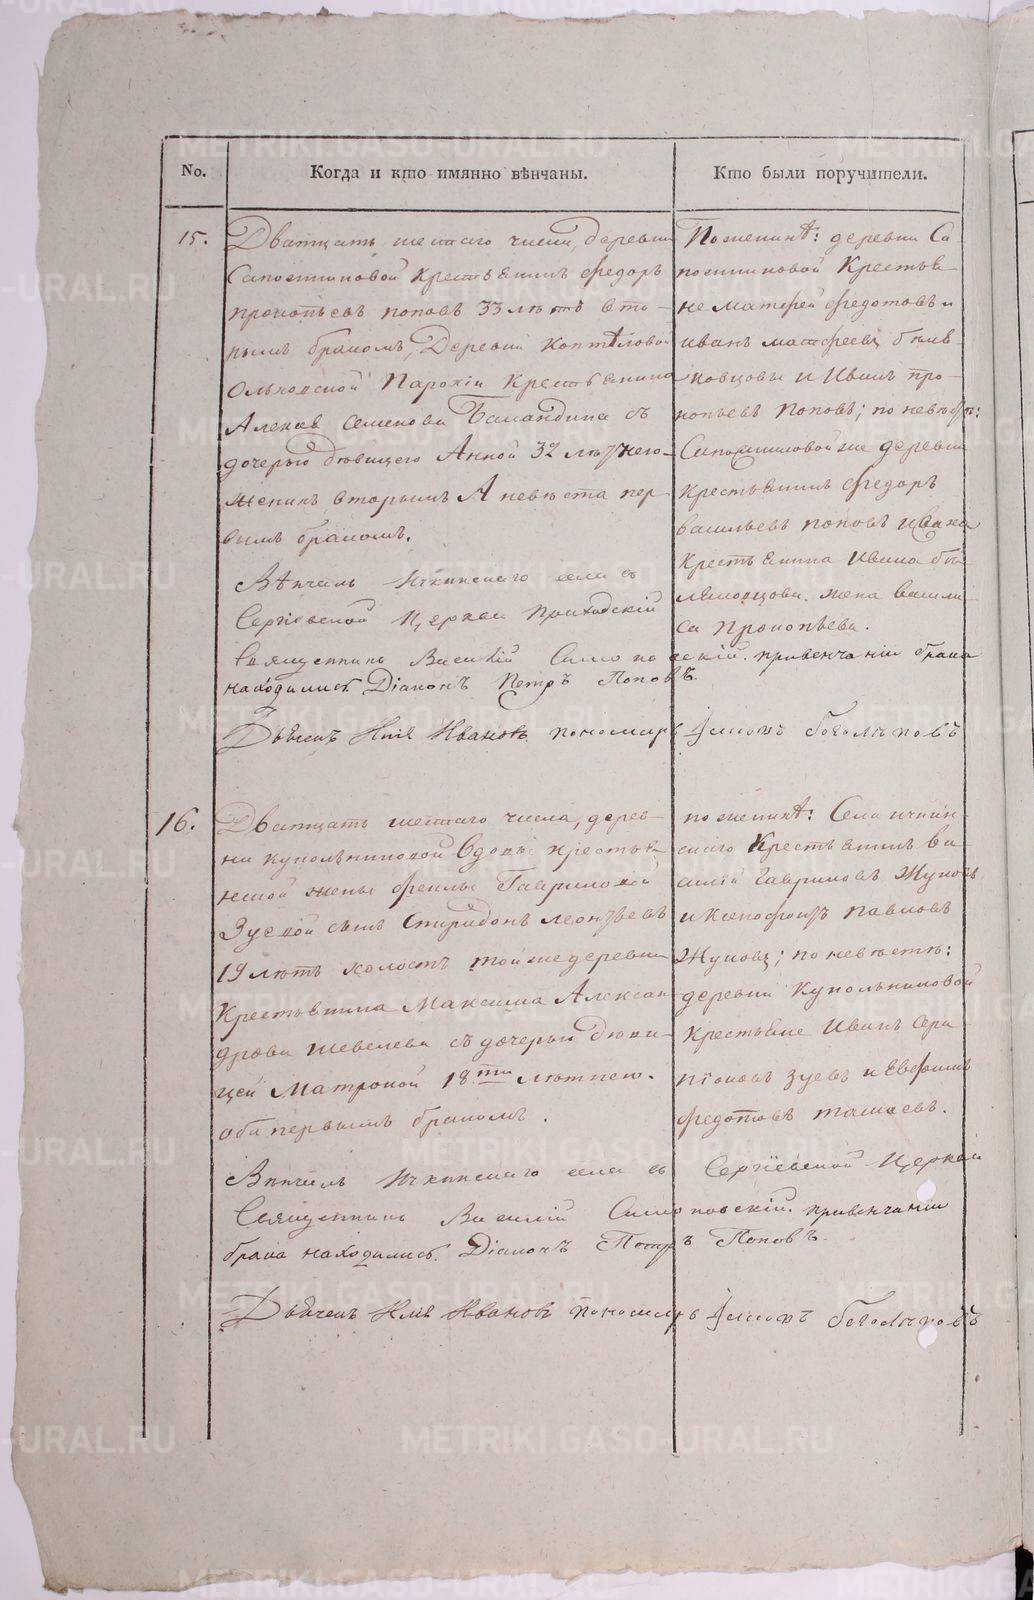 No.
Когда и кто имянно вѣнчаны.
Кто были поручители.
15.
Дватцать шестаго числа, деревни
Сапоетниковой Крестьянинъ Федоръ
прокопьевъ поповъ 33 лѣтъ вто-
рымъ бракомъ, Деревни Коптѣловой
Ольховской Парохіи Крестьянина
Алексея Семенова Баландина съ
дочерью дѣвицею Анной 32 лѣтнею
женихъ вторымъ А невѣста пер-
вымъ бракомъ.
Вѣнчалъ Ичкинскаго села съ
Сергіевской Церкви Приходскій
Священникъ Василій
привенчаніи брака
находились Діаконъ Петръ Поповъ.
Дьячекъ Илія Ивановъ пономарь
По женихѣ: деревни Са
Крестья-
не Матфей Федотовъ и
иванъ матфеевъ
и Иванъ про-
копьевъ поповъ; по невѣстѣ:
же деревни
Крестьянинъ Федоръ
васильевъ поповъ
Крестьянина Ивана
жена васили
са Прокопьева.
16.
Дватцать шестаго числа, дерев-
ни купольниковой вдовы крестья-
нской жены Феклы Гавриловой
Зуевой сынъ Спиридонъ леонтьевъ
19 лѣтъ холостъ тойже деревни
Крестьянина Максима Алексан
дрова шевелева съ дочерью дѣви-
цей Матроной 18ти лѣтнею.
оба первымъ бракомъ.
Вѣнчалъ Ичкинскаго села съ Сергіевской Церкви
Священникъ Василій привенчаніи
брака находились Діаконъ Петръ Поповъ.
Дьячекъ Илія Ивановъ пономарь
по женихѣ: Села ичкин-
скаго Крестьянинъ ва-
силій Гавриловъ Жуковъ
и Ксенофонтъ павловъ
Жуковъ; по невѣстѣ:
деревни Купольниковой
Крестьяне Иванъ Сера
піоновъ зуевъ и Евфимъ
федотовъ
METRIKI.GASO-URAL.RU